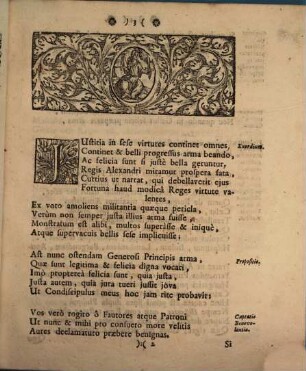 JUstitia in sese virtutes continet omnes,
Exordium.
Continet & belli progressus arma beando,
Ac felicia sunt si justè bella geruntur,
Regis Alexandri miramur prospera fata,
Curtius ut narrat, qui debellaverit ejus
Fortuna haud modicâ Reges virtute va-
lentes,
Ex voto amoliens militantia quæque pericla,
Verùm non semper justa illius arma fuisse,
Monstratum est alibi, multos superâsse & iniquè,
Atque supervacuis bellis sese implicuisse:
Ast nunc ostendam Generosi Principis arma,
Propositio.
Quæ sunt legitima & felicia digna vocari,
Imò propterea felicia sunt, quia justa,
Justa autem, quia jura tueri jussit jova
Ut Condiscipulus meus hoc jam rite probavit:
Vos verò rogito ô Fautores atque Patroni
Captatio
Benevo-
lentiæ.
Ut nunc & mihi pro consueto more velitis
Aures declamaturo præbere benignas.
)( 2
Si